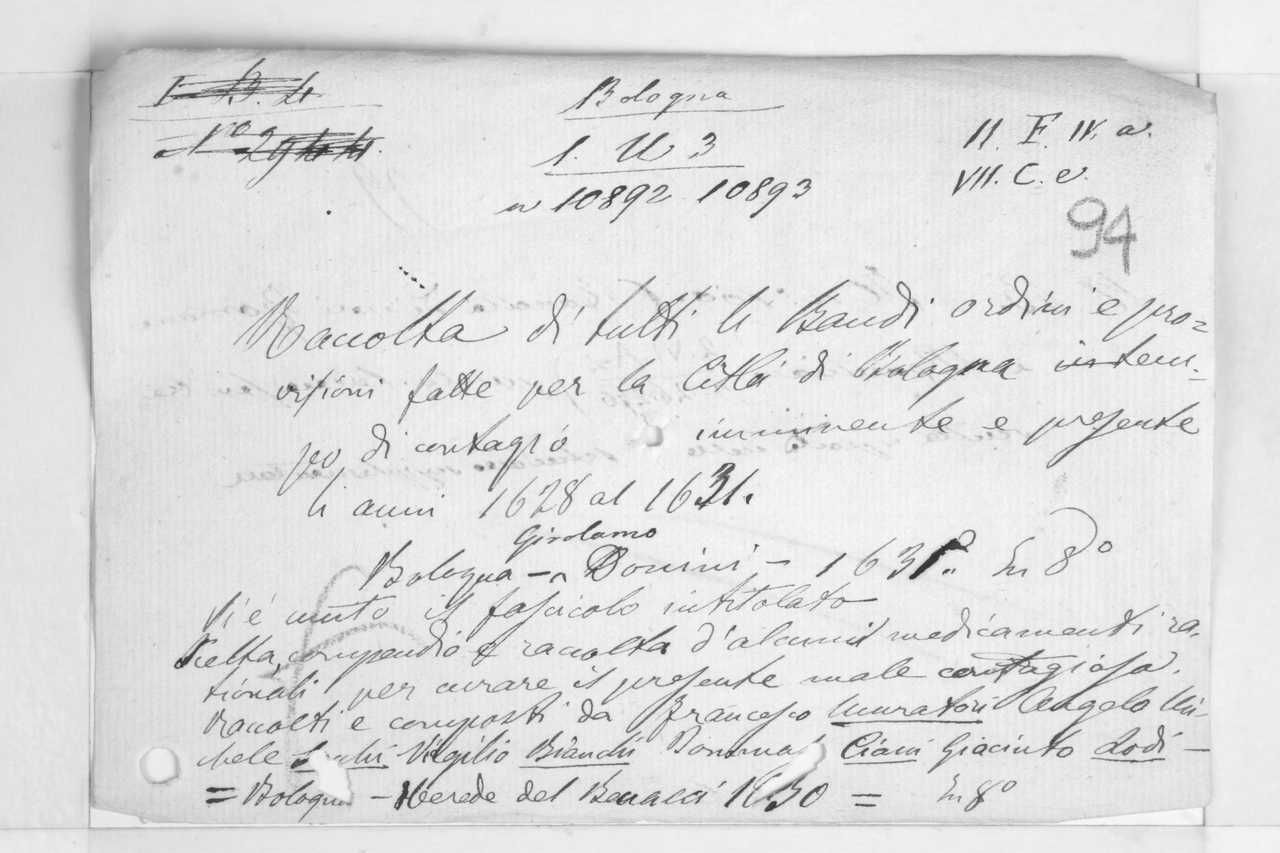 Bologna
1. U 3
n 10892 10893
II. F. IV. a.
VII. C. e.
94
Raccolta di tutti li Bandi ordini e pro=
visioni fatte per la Città di Bologna in tem-
po di contagio imminente e presente
li anni 1628 al 1631.
Girolamo
Bologna - Donini - 1631. In 8°
Vi è unito il fascicolo intitolato
Scelta, compendio e raccolta d'alcuni medicamenti ra-
tionali per curare il presente male contagioso.
raccolti e composti da Francesco Muratori Angelo Mi-
chele Virgilio Bianchi Ciani Giacinto Lodi -
= Bologna - Herede del Benacci 1630 = In 8°